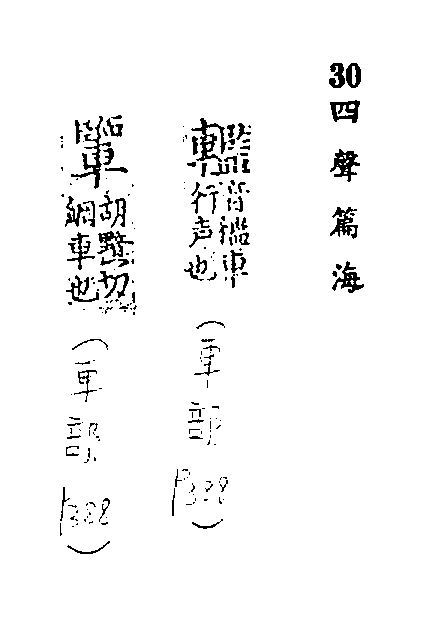 30 四聲篇海
轞
音檻車
行声也
(車部
P388)
胡黤切
網車也
(車部
P388)